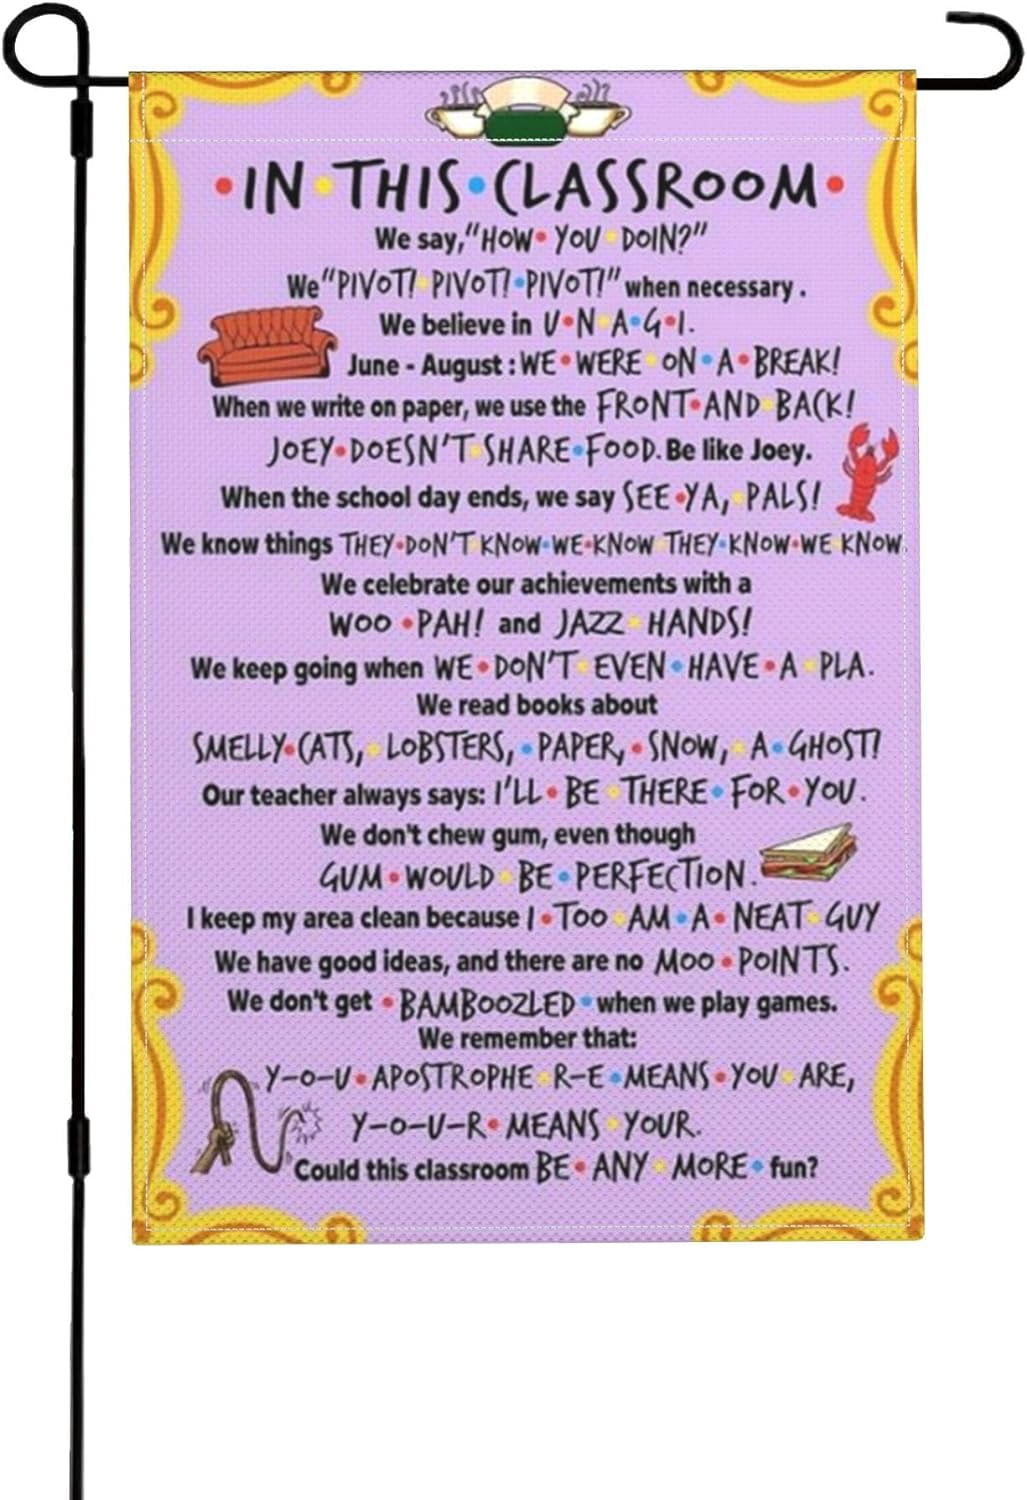 IN THIS CLASSROOM
We say, "HOW YOU DOIN?"
We "PIVOT! PIVOT! PIVOT!" when necessary.
We believe in U•N•A•G•I.
June - August : WE•WERE•ON•A•BREAK!
When we write on paper, we use the FRONT•AND•BACK!
JOEY•DOESN'T•SHARE•FOOD. Be like Joey.
When the school day ends, we say SEE•YA,•PALS!
We know things THEY•DON'T•KNOW•WE•KNOW•THEY•KNOW•WE•KNOW.
We celebrate our achievements with a
WOO•PAH! and JAZZ•HANDS!
We keep going when WE•DON'T•EVEN•HAVE•A•PLA.
We read books about
SMELLY•CATS,•LOBSTERS,•PAPER,•SNOW,•A•GHOST!
Our teacher always says: I'LL•BE•THERE•FOR•YOU.
We don't chew gum, even though
GUM•WOULD•BE•PERFECTION.
I keep my area clean because I•TOO•AM•A•NEAT•GUY
We have good ideas, and there are no MOO•POINTS.
We don't get •BAMBOOZLED• when we play games.
We remember that:
Y-O-U•APOSTROPHE•R-E•MEANS•YOU•ARE,
Y-O-U-R•MEANS•YOUR.
Could this classroom BE•ANY•MORE• fun?